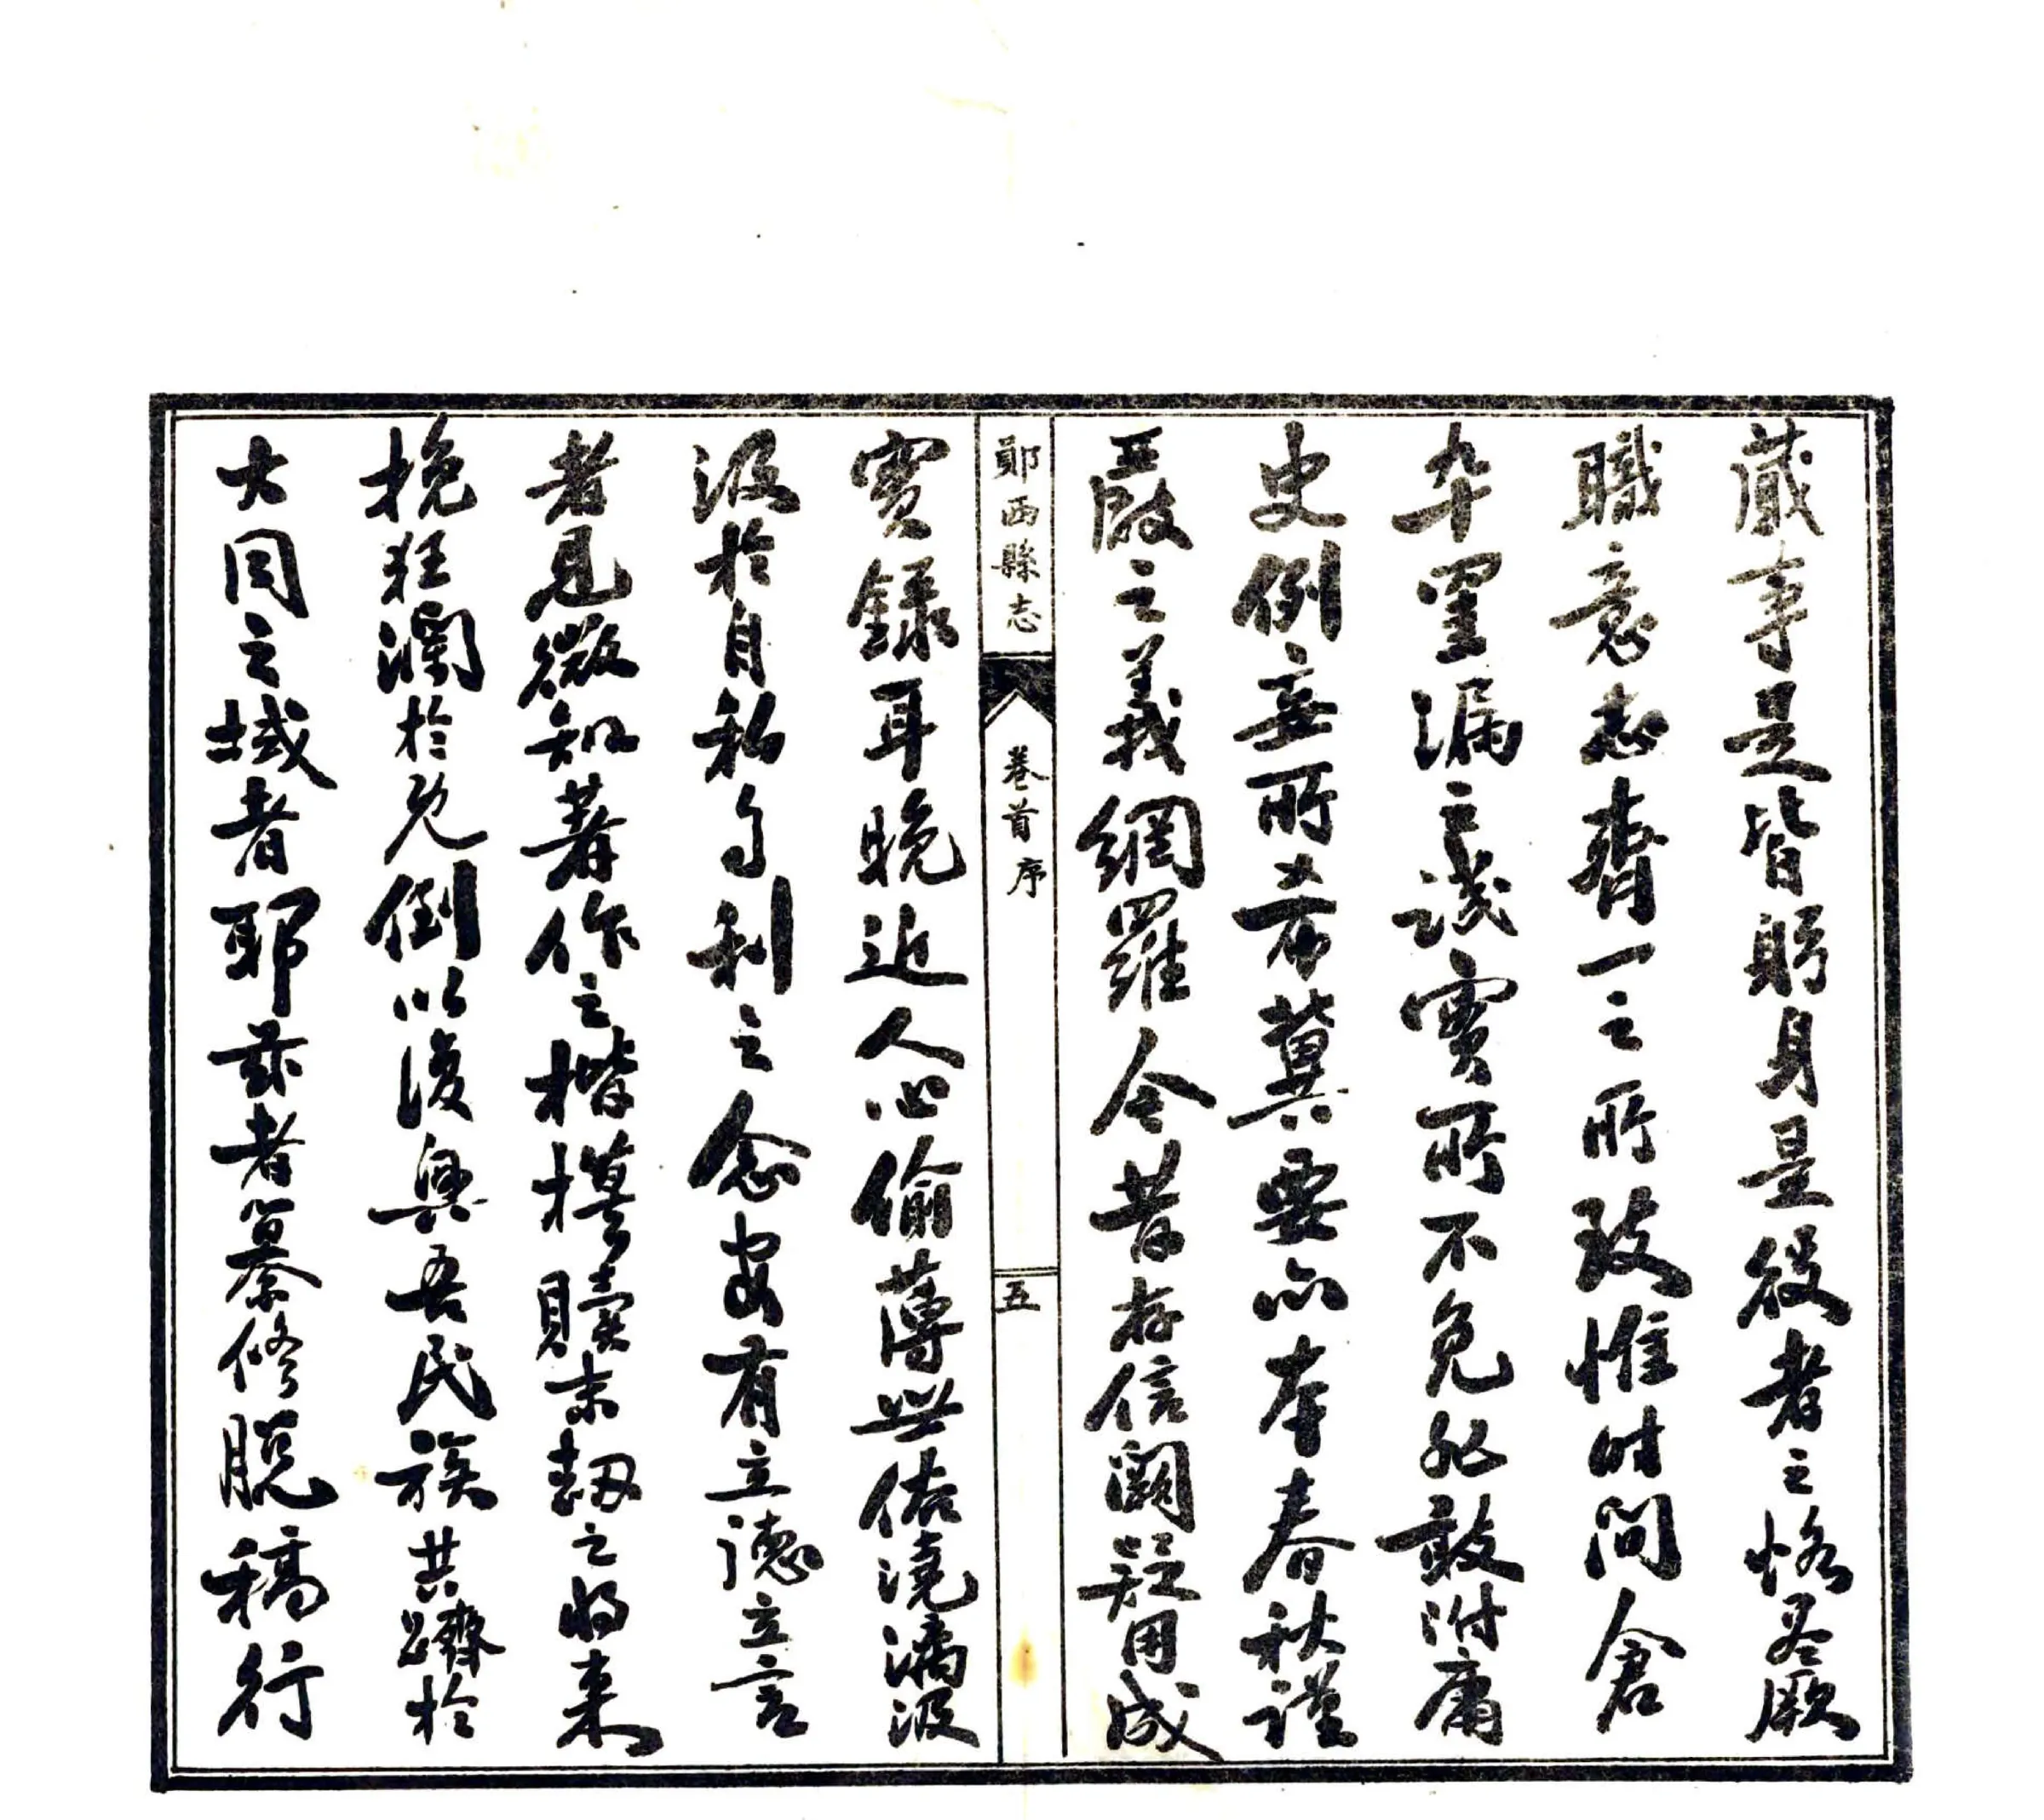 蕆事是皆躬身是役者之恪尽厥
職意志齊一之所致惟时间倉
卒罣漏之譏實所不免非敢附庸
史例妄所希冀要亦本春秋謹
嚴之義網羅今昔存信闕疑用成
鄖西縣志
卷首序
五
實錄耳晚近人心偷薄世俗澆漓汲
汲於自私自利之念安有立德立言
者見微知著作之楷模贖末劫之將来
挽狂瀾於既倒以復興吾民族共躋於
大同之域者耶茲者纂修脫稿行